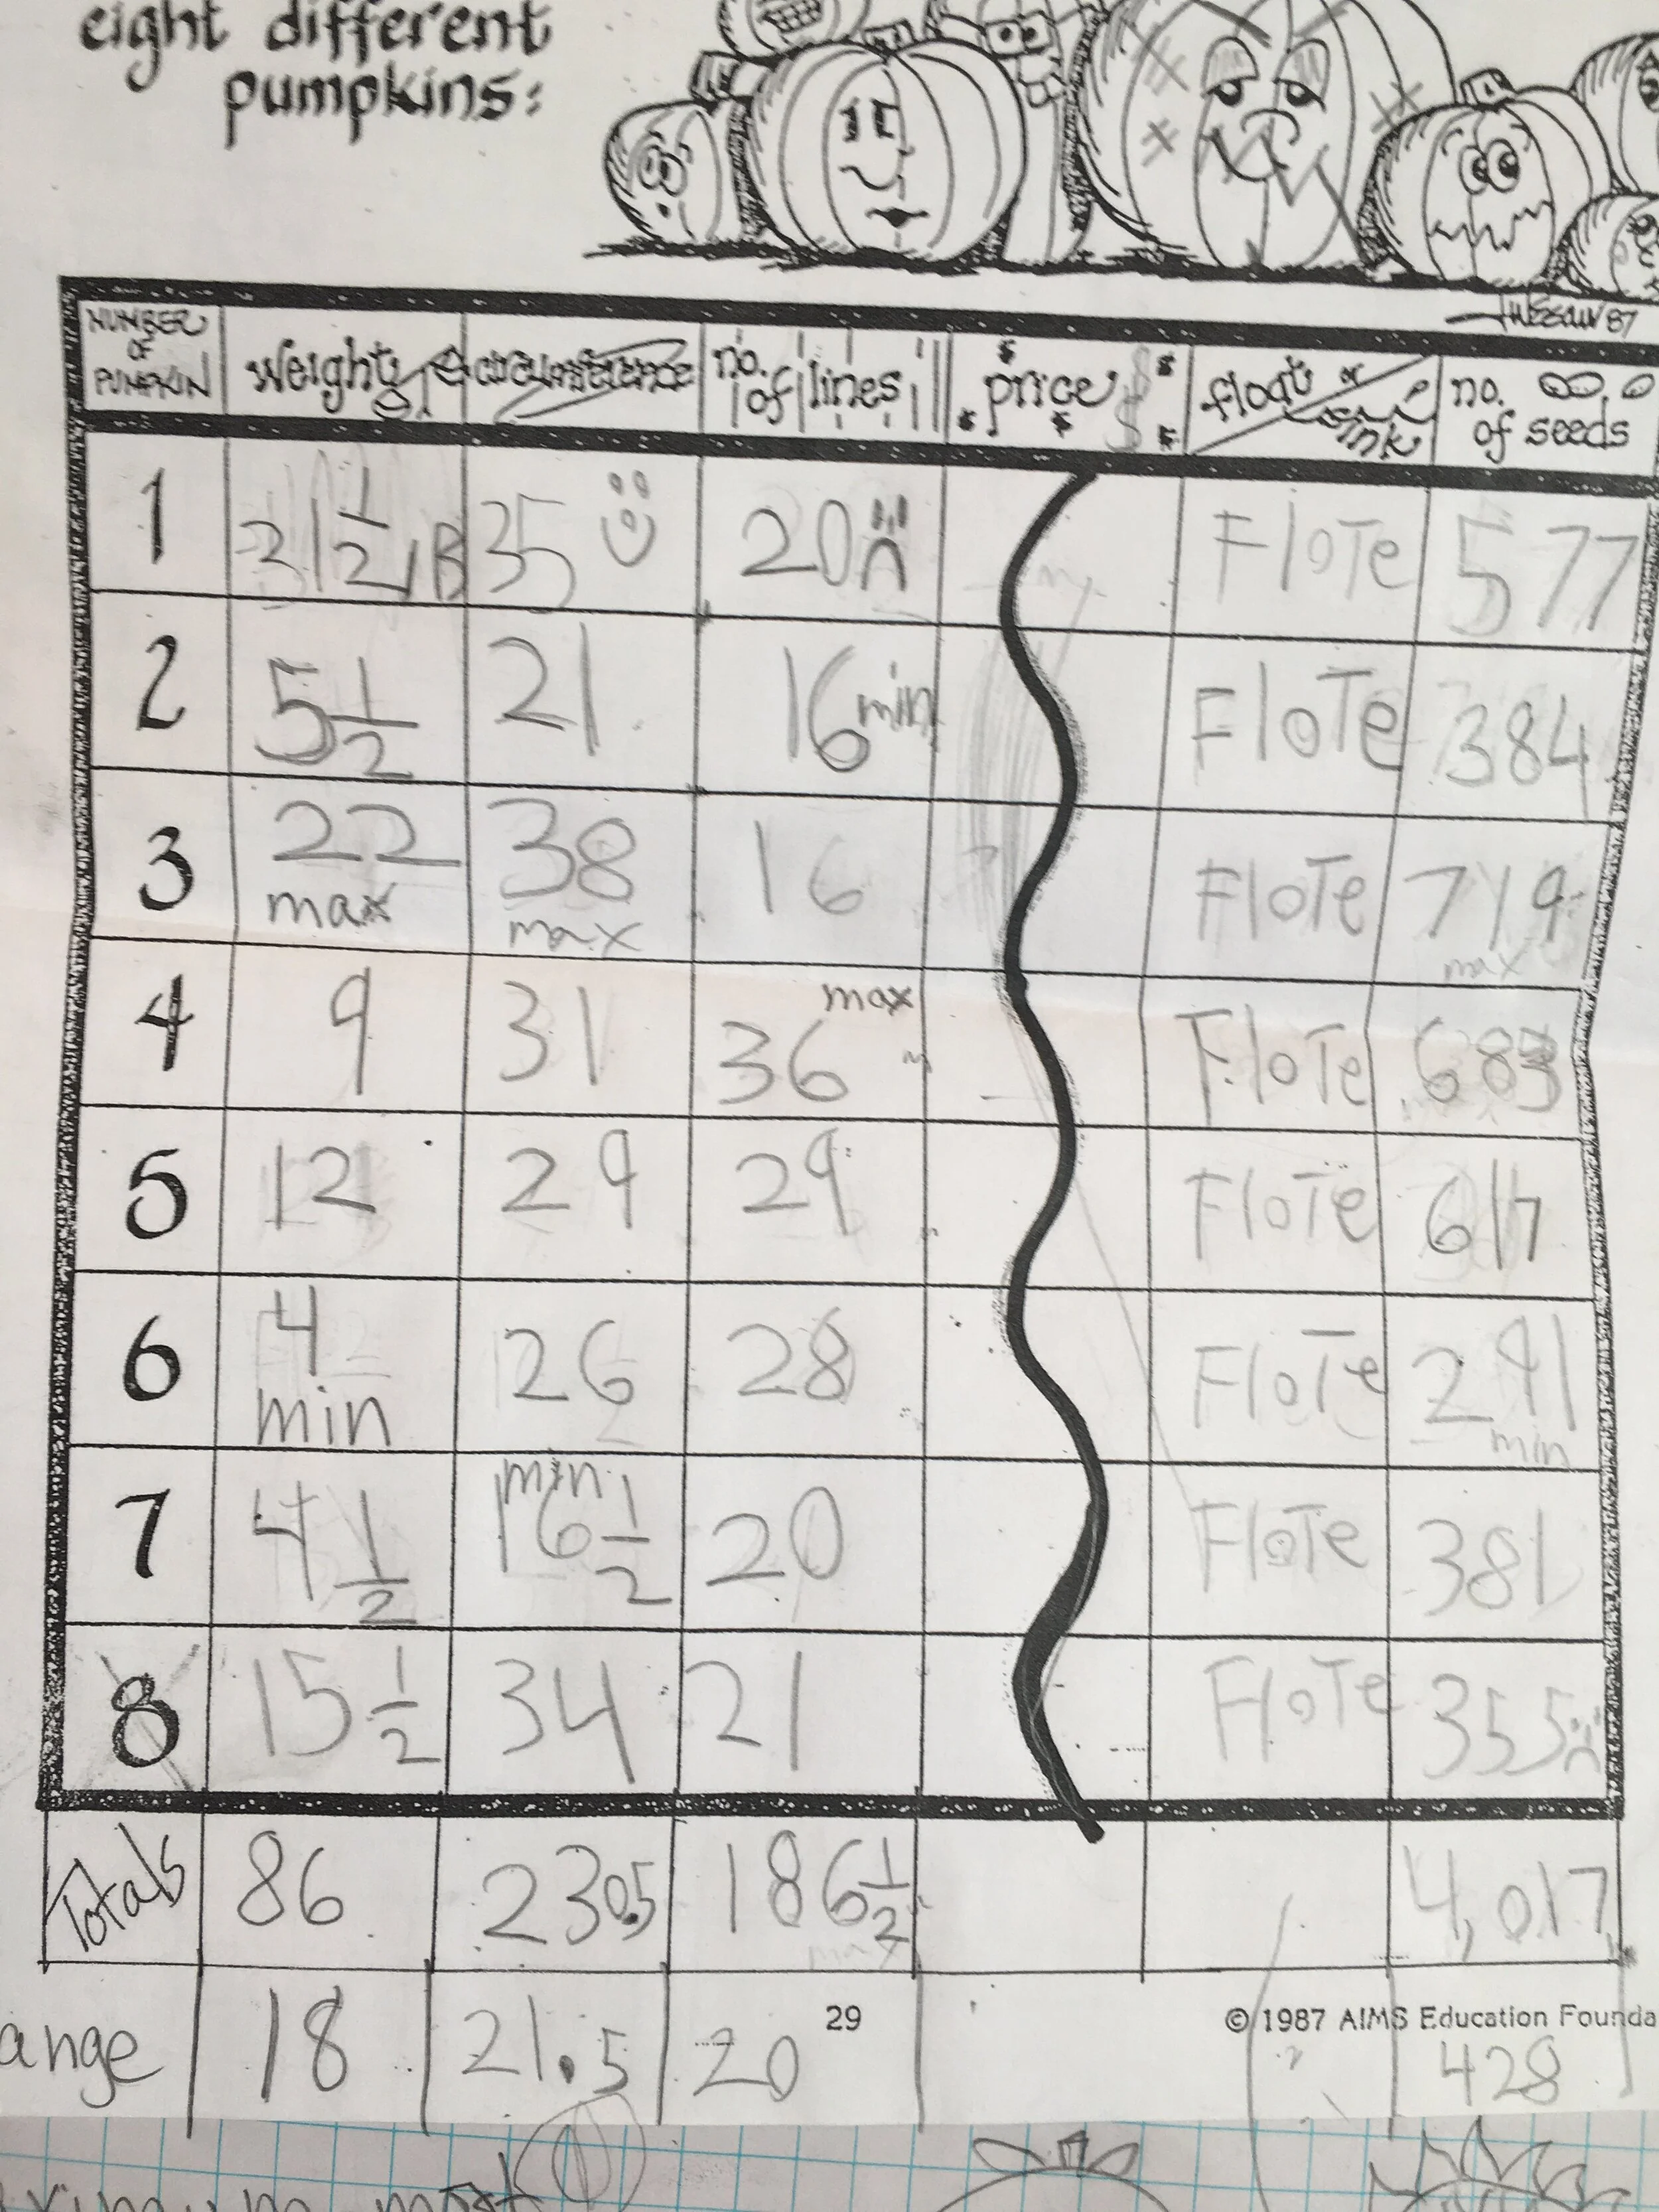 eight different
pumpkins:
NUMBER OF PUMPKIN weight circumference no. of lines price $ float or sink no. of seeds
1 21 1/2 lB 35 20 FloTe 577
2 5 1/2 21 16 min FloTe 384
3 22 max 38 max 16 FloTe 719 max
4 9 31 36 max FloTe 683
5 12 29 29 FloTe 617
6 4 min 26 28 FloTe 291 min
7 4 1/2 min 16 1/2 20 FloTe 381
8 15 1/2 34 21 FloTe 355
Totals 86 230.5 186 1/2 4,017
ange 18 21.5 20 428
29
© 1987 AIMS Education Founda